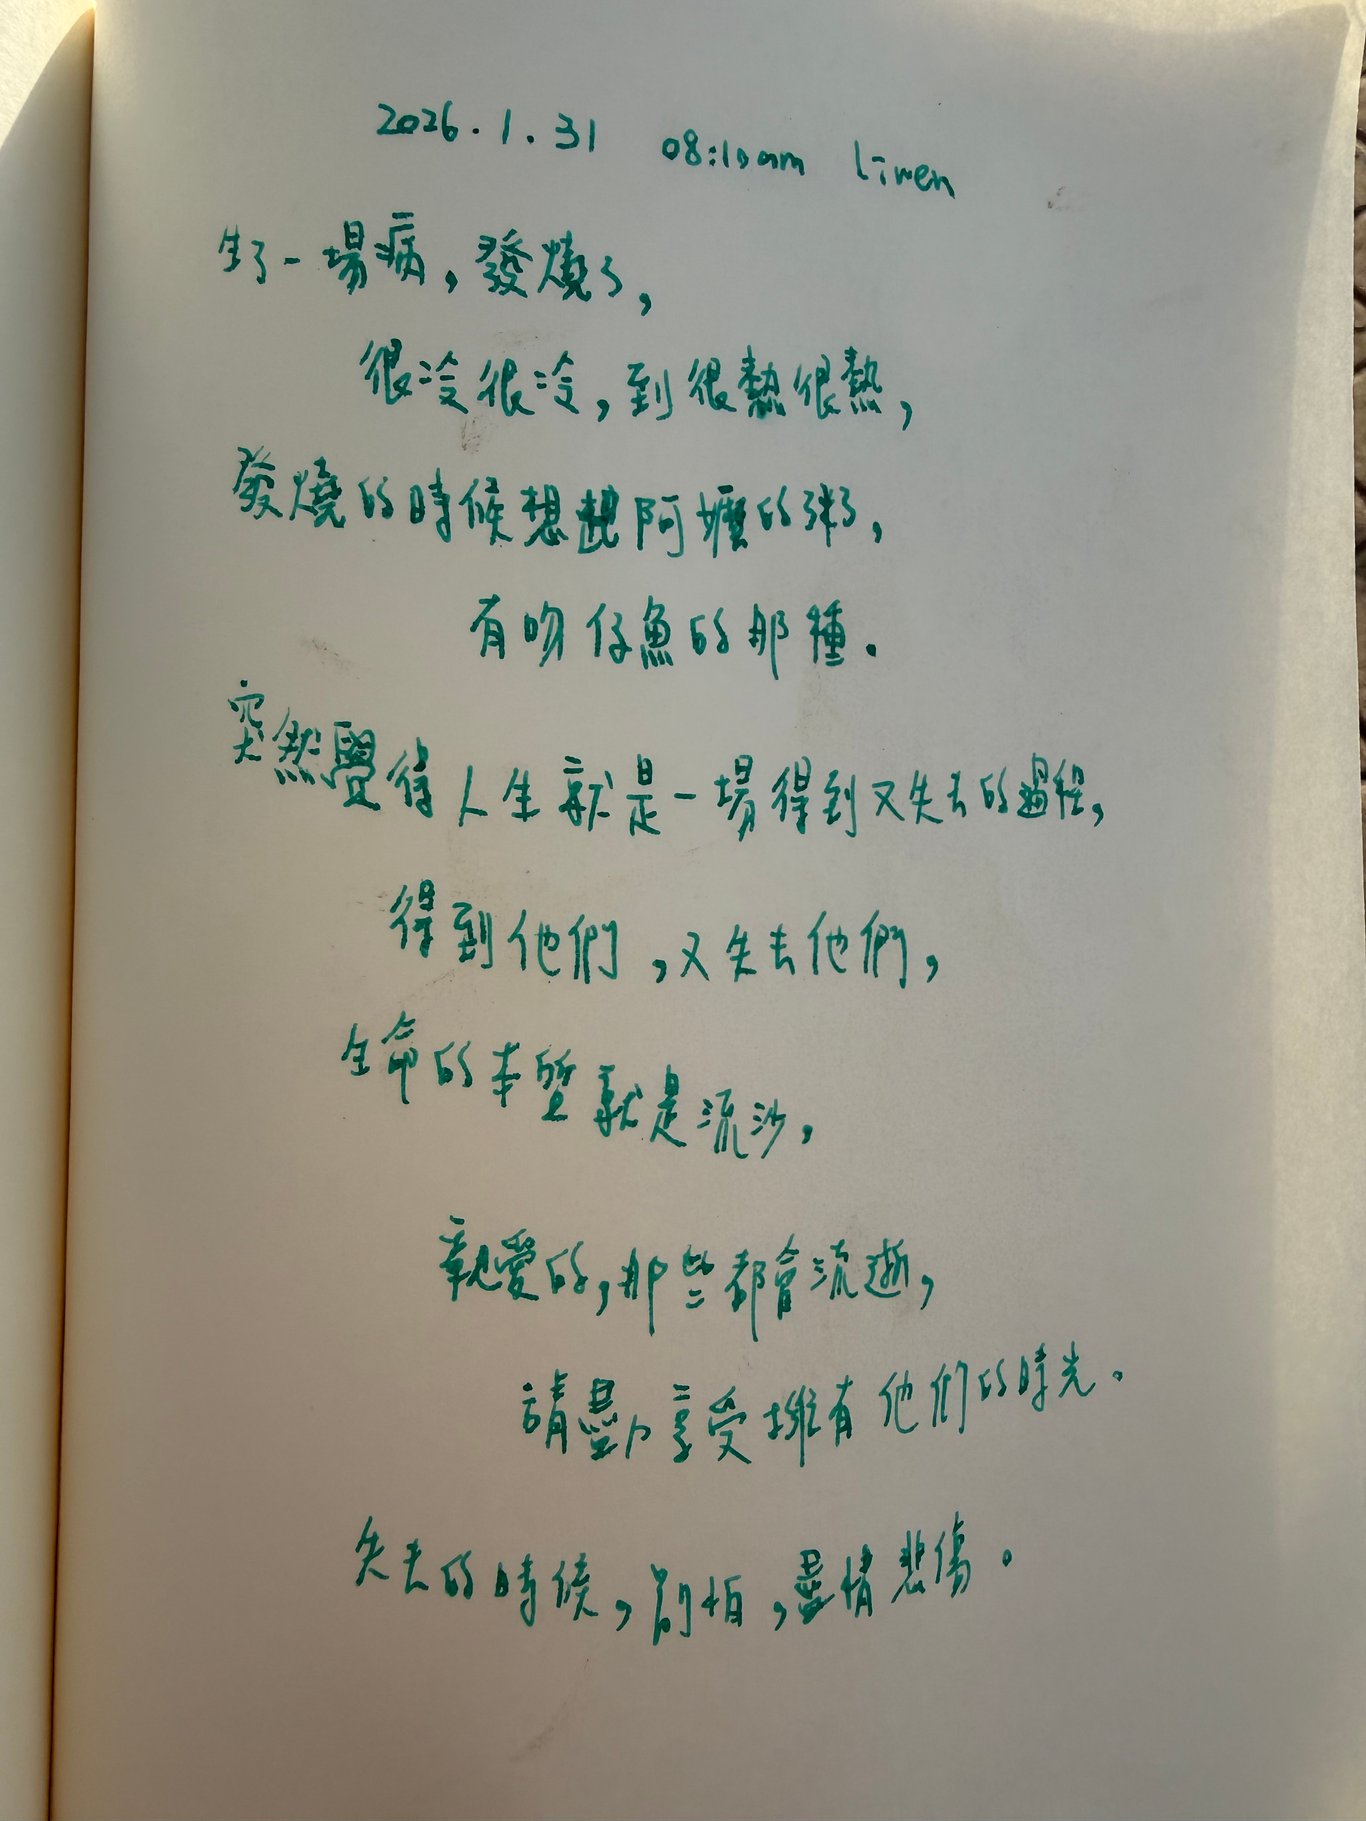 2026.1.31 08:10am liwen
生了一場病，發燒了，
很冷很冷，到很熱很熱，
發燒的時候想起阿嬤的粥，
有吻仔魚的那種。
突然覺得人生就是一場得到又失去的過程，
得到他們，又失去他們，
生命的本質就是流沙，
親愛的，那些都會流逝，
請盡力享受擁有他們的時光。
失去的時候，別怕，盡情悲傷。